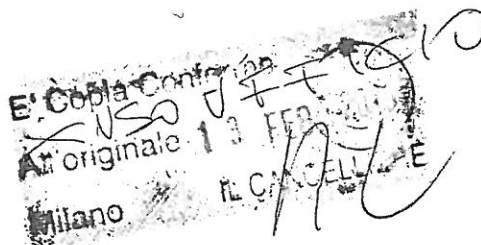 E' Copia Conforme
USO UFFICIO
All'originale 13 FEB
Milano IL CANCELLIERE